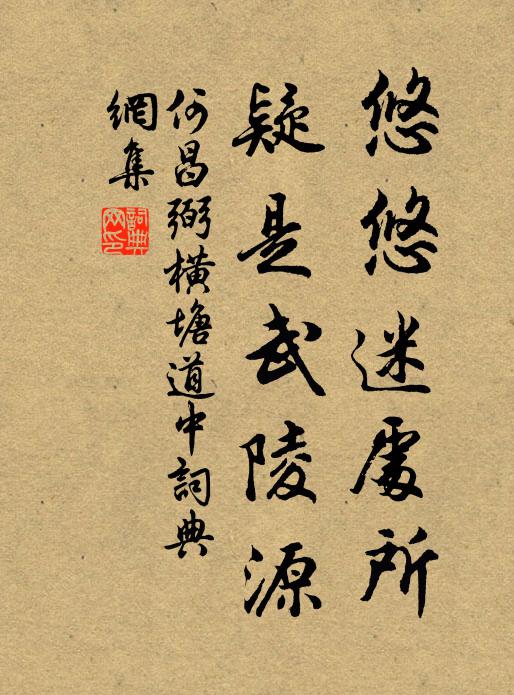 悠悠迷處所
疑是武陵源
何昌弼橫塘道中詞典
網集
詞典
网印